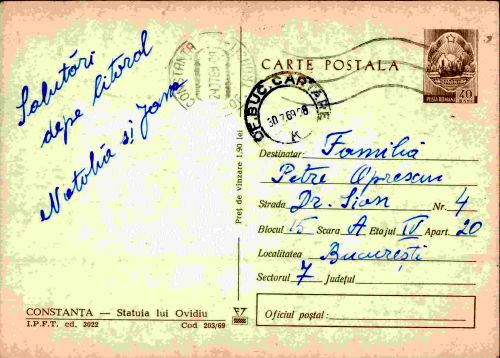 Salutări
depe litoral
Natalia si Jana
CONSTANȚA
CARTE POSTALA
POSTA ROMANA
40
OF. BUC. CARTARE
30.7.69.08
Preț de vînzare 1,90 lei
Destinatar: Familia
Petre Oprescu
Strada Dr. Sion Nr. 4
Blocul 15 Scara A Etajul IV Apart. 20
Localitatea București
Sectorul 7 Județul
Oficiul poștal:
CONSTANȚA — Statuia lui Ovidiu
I.P.F.T. cd. 3022 Cod 203/69